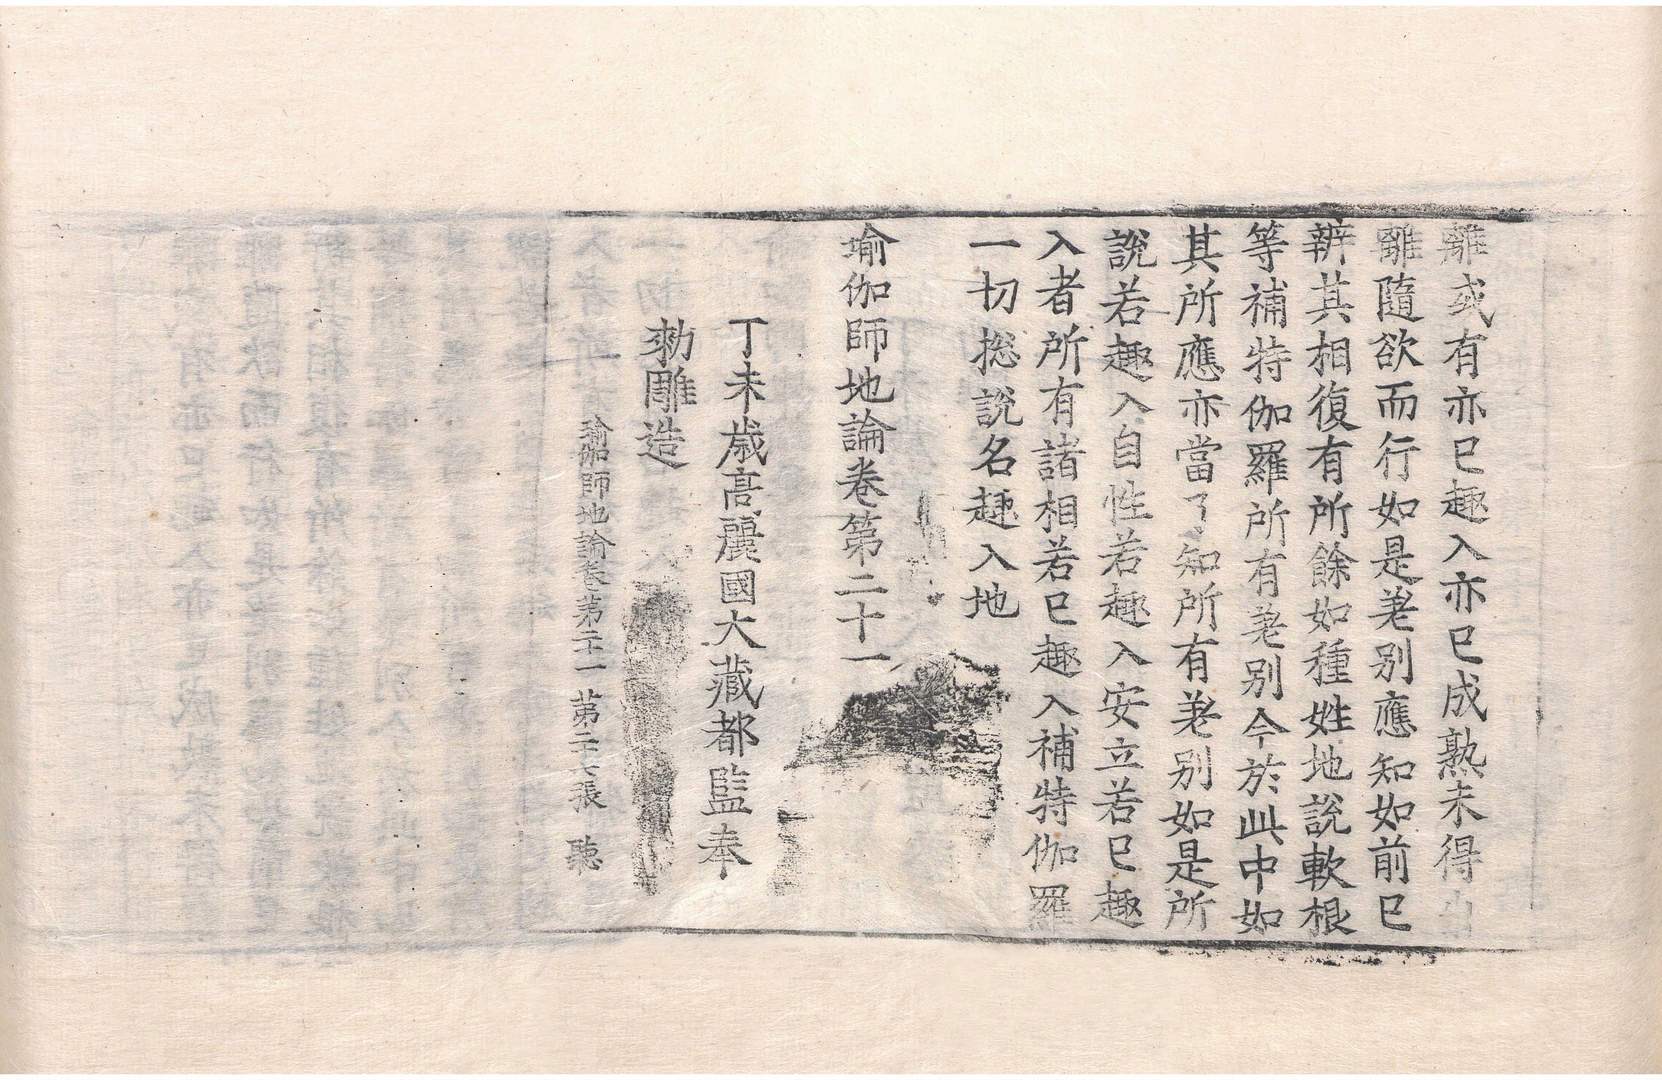 離或有亦已趣入亦已成熟未得出
離隨欲而行如是差別應知如前已
辨其相復有所餘如種姓地說軟根
等補特伽羅所有差別今於此中如
其所應亦當了知所有差別如是所
說若趣入自性若趣入安立若已趣
入者所有諸相若已趣入補特伽羅
一切揔說名趣入地
瑜伽師地論卷第二十一
丁未歲高麗國大藏都監奉
勅雕造
瑜伽師地論卷第二十一 第二十七張 聴